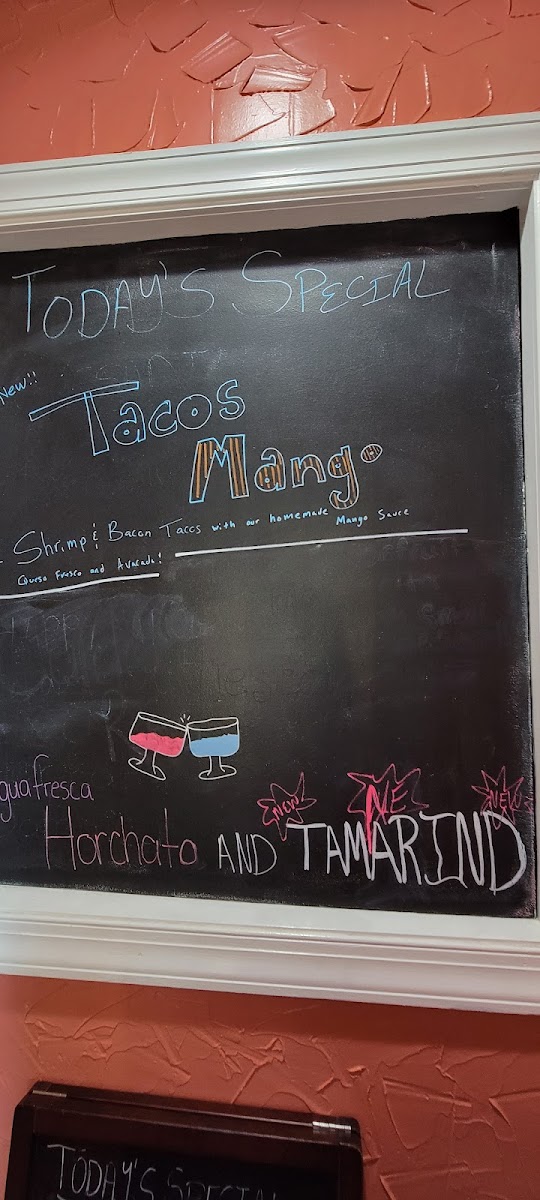 TODAY'S SPECIAL
New!!
Tacos
Mango
Shrimp & Bacon Tacos with our homemade Mango Sauce
Queso Fresco and Avacado!
guafresca
NEW NE NEW
Horchata AND TAMARIND
TODAY'S SPECIAL